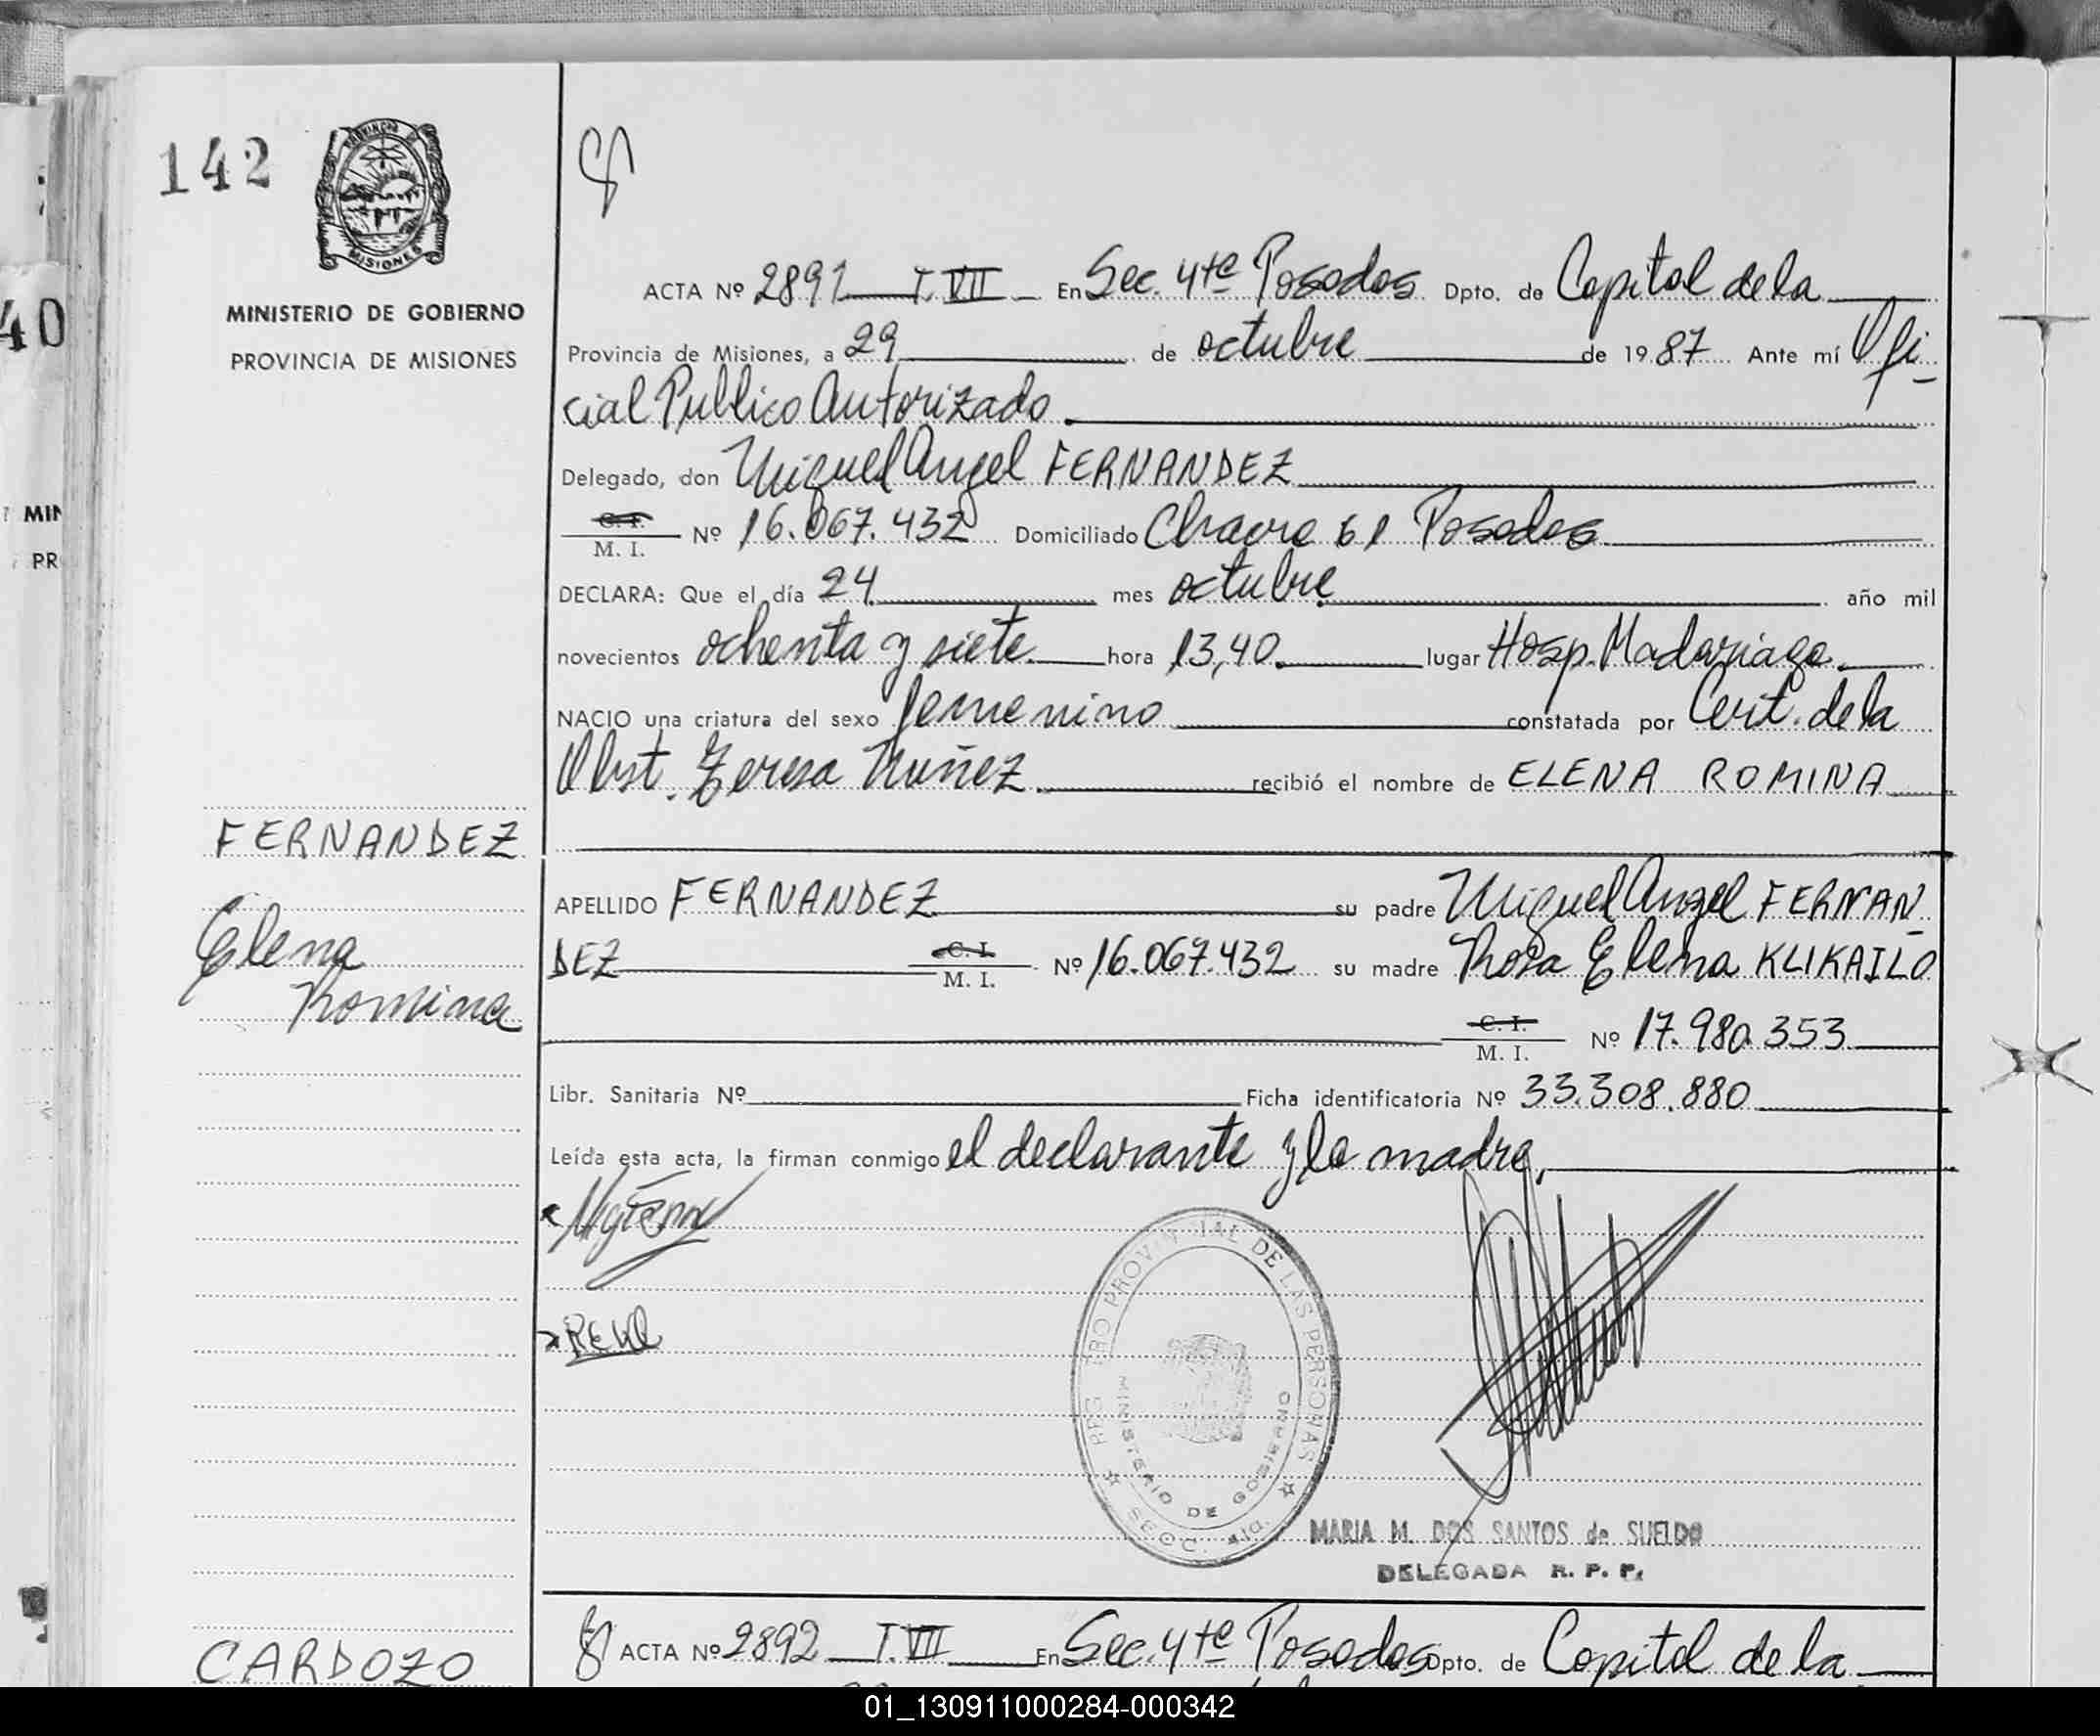 142
PROVINCIA
MISIONES
MINISTERIO DE GOBIERNO
PROVINCIA DE MISIONES
40
MIN
PR
ACTA Nº 2891 T. VII En Sec. 4ta Posadas Dpto. de Capital de la
Provincia de Misiones, a 29 de octubre de 1987 Ante mí Ofi-
cial Publico Autorizado.
Delegado, don Miguel Angel FERNANDEZ
C. I.
M. I. Nº 16.067.432 Domiciliado Chacra 61 Posadas
DECLARA: Que el día 24 mes octubre año mil
novecientos ochenta y siete hora 13,40. lugar Hosp. Madariaga.
NACIO una criatura del sexo femenino constatada por Cert. de la
Obst. Teresa Nuñez recibió el nombre de ELENA ROMINA
FERNANDEZ
Elena
Romina
APELLIDO FERNANDEZ su padre Miguel Angel FERNAN-
DEZ C. I.
M. I. Nº 16.067.432 su madre Rosa Elena KLIKAILO
C. I.
M. I. Nº 17.980.353
Libr. Sanitaria Nº Ficha identificatoria Nº 33.308.880
Leída esta acta, la firman conmigo el declarante y la madre,
REG TRO PROVIN IAL DE LAS PERSONAS
MINISTERIO DE GOBIERNO
SECC. 4ta.
MARIA M. DOS SANTOS de SUELDO
DELEGADA R. P. P.
CARDOZO
ACTA Nº 2892 T. VII En Sec. 4ta Posadas Dpto. de Capital de la
01_130911000284-000342